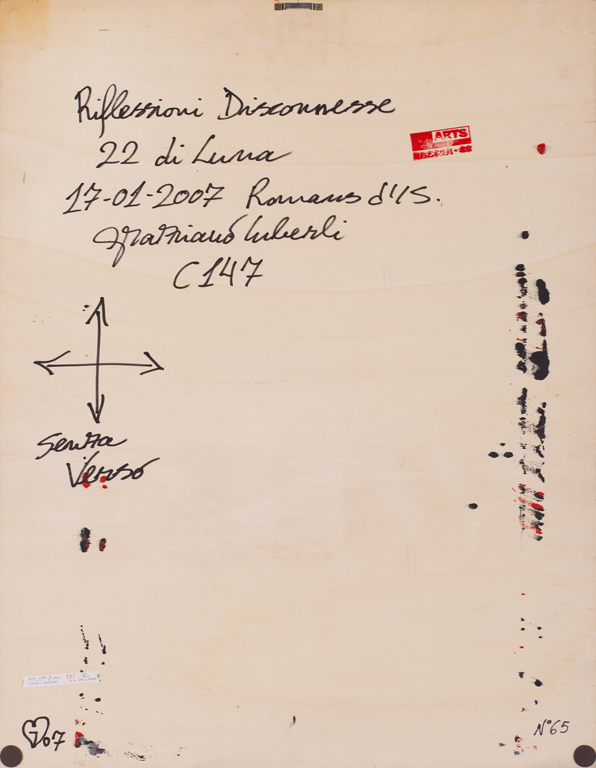 Riflessioni Disconnesse
22 di Luna
17-01-2007 Romans d'IS.
Graziano Luberli
C147
ARTS
Senza
Verso
07
N°65